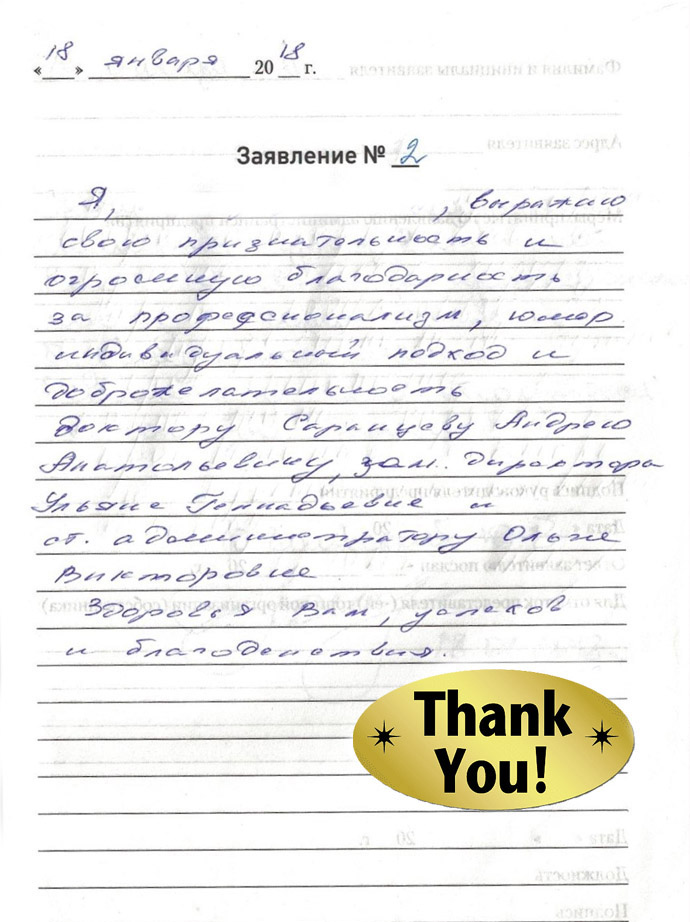 « 18 » января 20 18 г.
Заявление № 2
Я, , выражаю
свою признательность и
огромную благодарность
за профессионализм, юмор
индивидуальный подход и
доброжелательность
доктору Саранцеву Андрею
Анатольевичу, зам. директора
Ульяне Геннадьевне и
ст. администратору Ольге
Викторовне
Здоровья Вам, успехов
и благоденствия.
Thank
You!